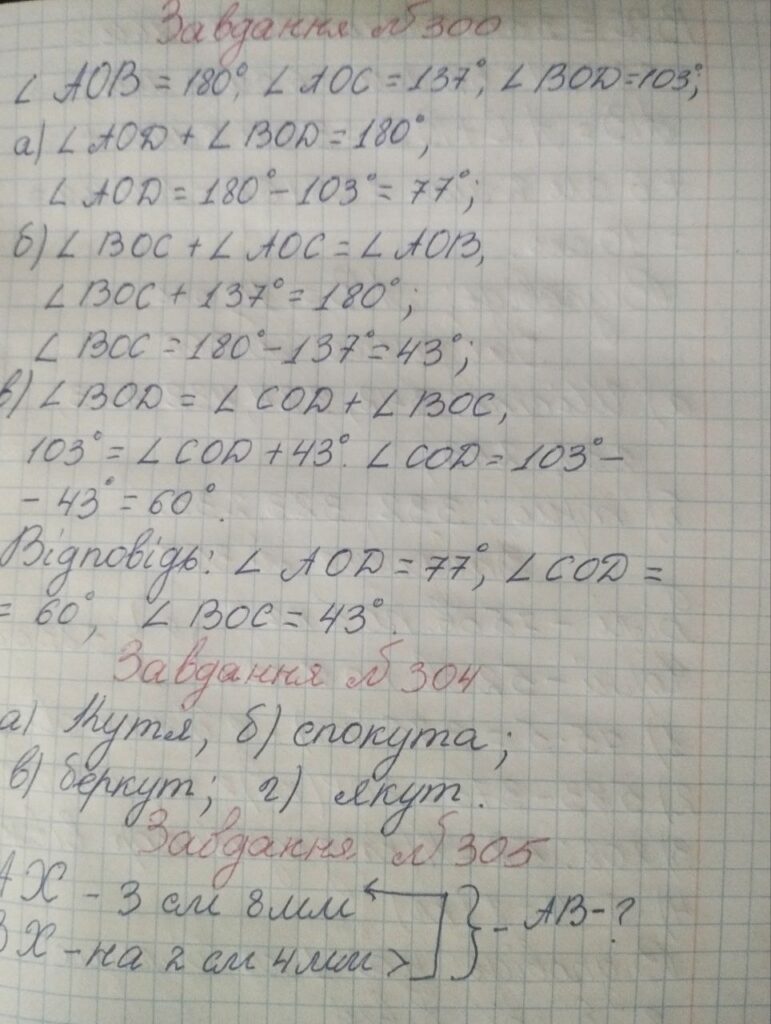 Завдання №300
∠ AOB = 180°, ∠ AOC = 137°, ∠ BOD = 103°;
а) ∠ AOD + ∠ BOD = 180°,
∠ AOD = 180° - 103° = 77°;
б) ∠ BOC + ∠ AOC = ∠ AOB,
∠ BOC + 137° = 180°;
∠ BOC = 180° - 137° = 43°;
в) ∠ BOD = ∠ COD + ∠ BOC,
103° = ∠ COD + 43°. ∠ COD = 103° -
- 43° = 60°.
Відповідь: ∠ AOD = 77°, ∠ COD =
= 60°, ∠ BOC = 43°.
Завдання №304
а) Кутя, б) спокута;
в) беркут; г) якут.
Завдання №305
AX - 3 см 8 мм } - AB - ?
BX - на 2 см 4 мм >